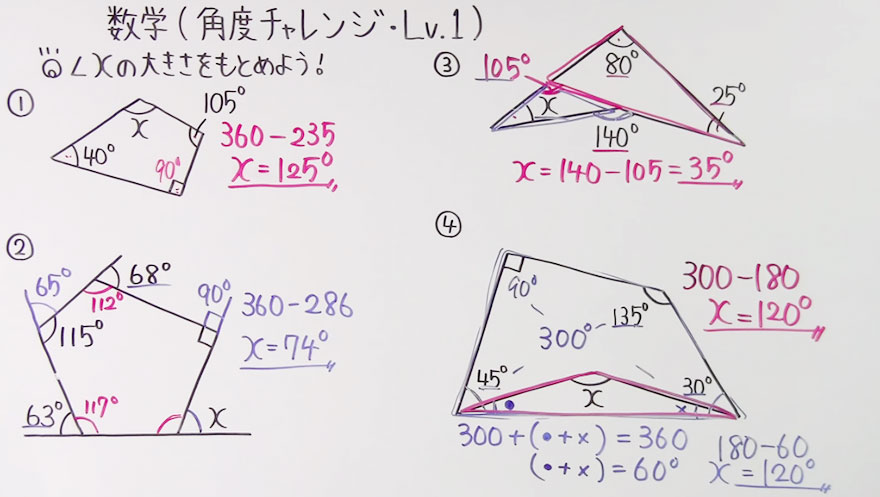 数学(角度チャレンジ・Lv.1)
∠xの大きさをもとめよう!
①
105°
x
40°
90°
360-235
x=125°
②
65°
68°
112°
115°
90°
360-286
x=74°
63°
117°
x
③
105°
80°
25°
x
140°
x=140-105=35°
④
90°
135°
300°
45°
30°
x
300-180
x=120°
300+(•+×)=360
(•+×)=60°
180-60
x=120°